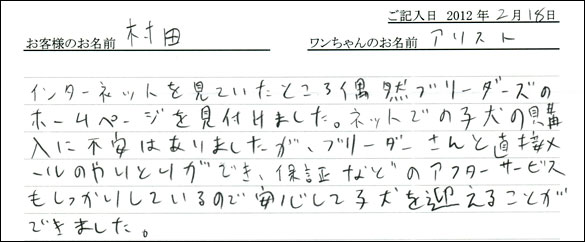 ご記入日 2012年2月18日
お客様のお名前 村田 ワンちゃんのお名前 アリスト
インターネットを見ていたところ偶然ブリーダーズの
ホームページを見付けました。ネットでの子犬の購
入に不安はありましたが、ブリーダーさんと直接メ
ールのやりとりができ、保証などのアフターサービス
もしっかりしているので安心して子犬を迎えることが
できました。